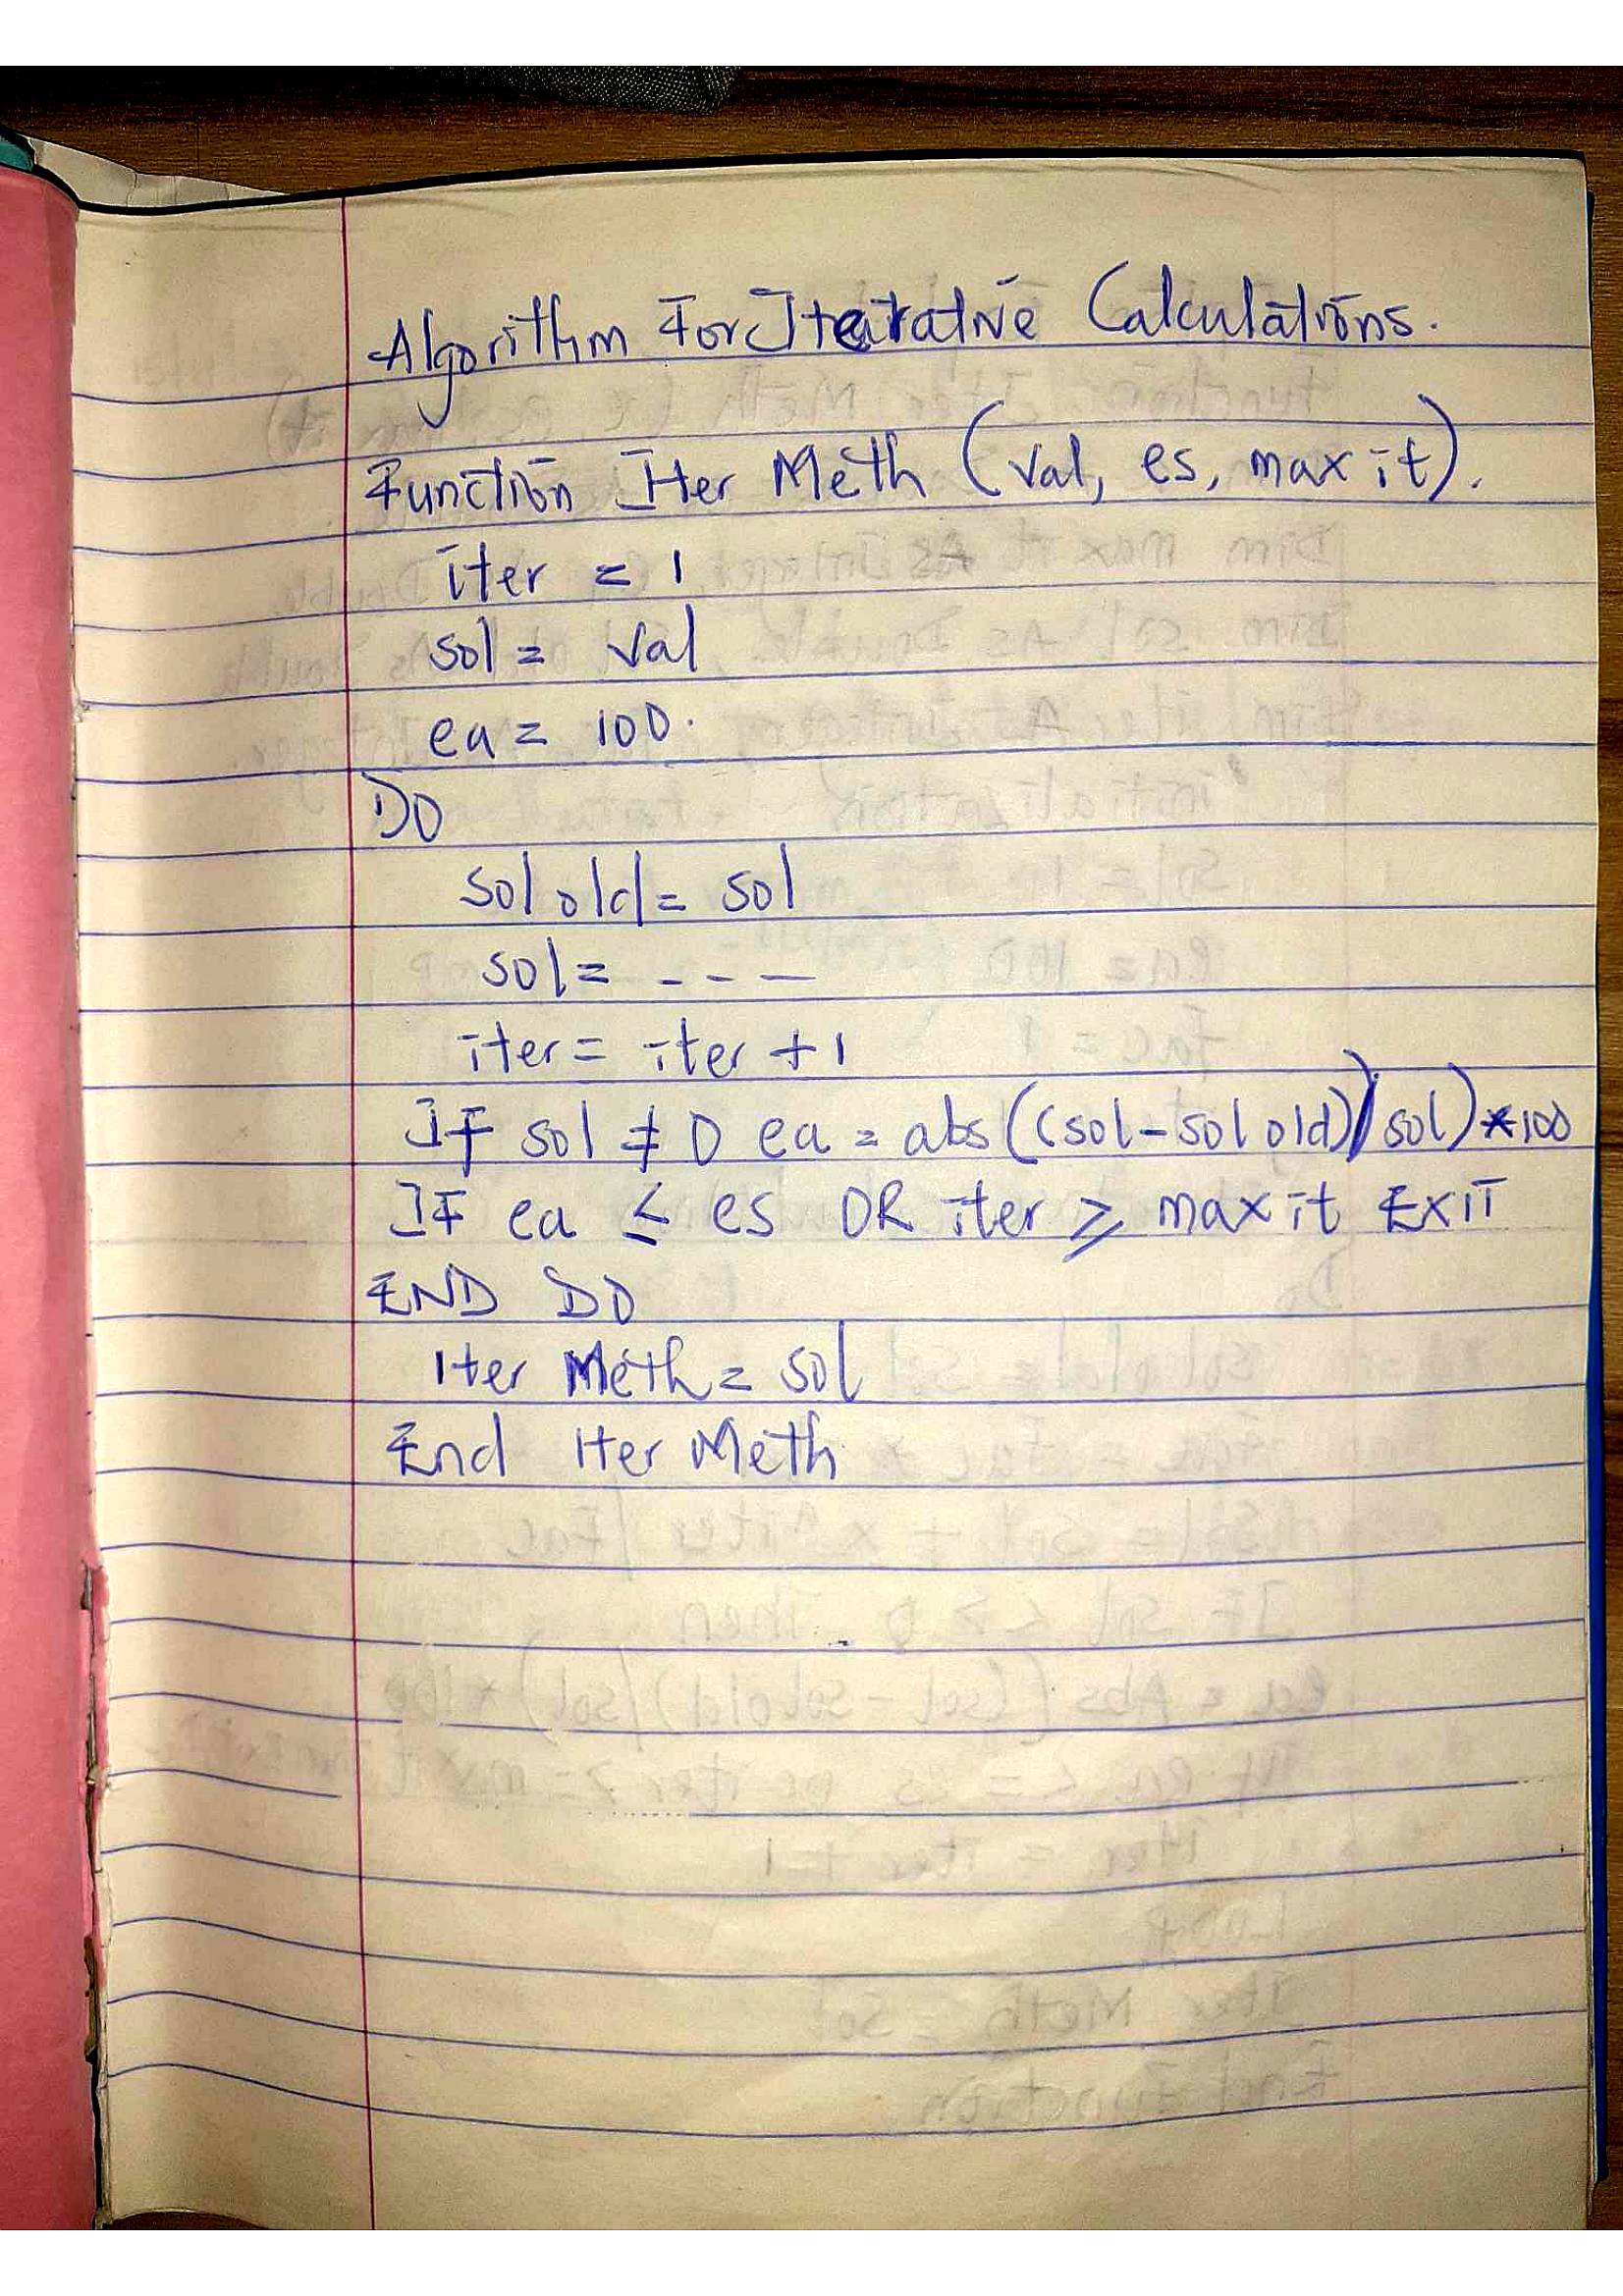 Algorithm For Iterative Calculations.
Function Iter Meth (val, es, max it).
iter = 1
sol = val
ea = 100.
DO
sol old = sol
sol = - - -
iter = iter + 1
IF sol ≠ 0 ea = abs((sol - sol old)/sol)*100
IF ea ≤ es OR iter ≥ max it EXIT
END DO
Iter Meth = sol
End Iter Meth